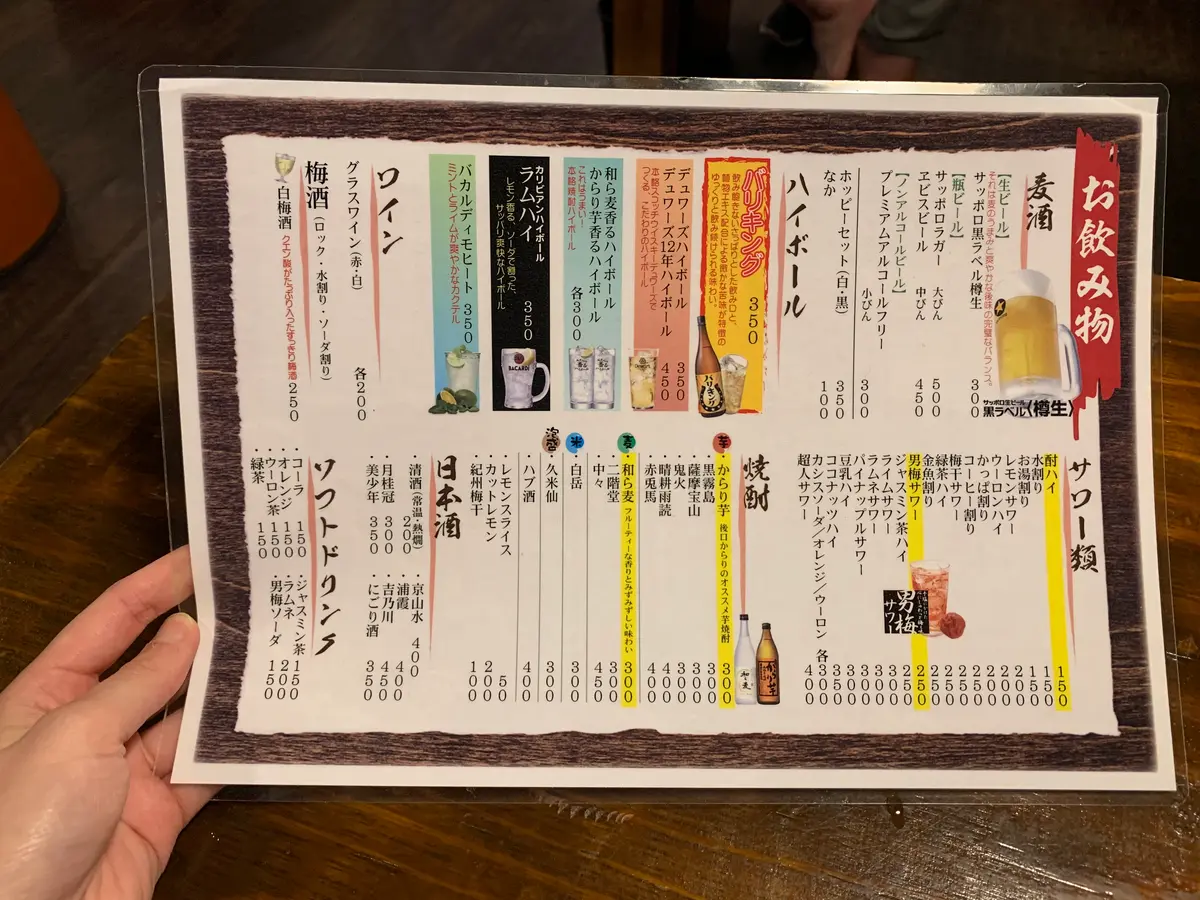 お飲み物
麦酒
【生ビール】
サッポロ黒ラベル樽生 300
それは麦のうまみと爽やかな後味の完璧なバランス。
【瓶ビール】
サッポロラガー 大びん 500
ヱビスビール 中びん 450
【ノンアルコールビール】
プレミアムアルコールフリー 小びん
ホッピーセット(白・黒) 350
なか 100
サッポロ生ビール
黒ラベル〈樽生〉
ハイボール
バリキング 350
飲み飽きないさっぱりとした飲み口と、
植物エキス配合による微かな苦味が特徴の
ゆっくりと飲み続けられる味わい。
バリキング
デュワーズハイボール 350
デュワーズ12年ハイボール 450
本格スコッチウイスキーデュワーズで
つくる、こだわりのハイボール
和ら麦香るハイボール
からり芋香るハイボール 各300
これはうまい!
本格焼酎ハイボール
カリビアンハイボール
ラムハイ 350
レモン香る、ソーダで割った、
サッパリ爽快なハイボール
BACARDI
バカルディモヒート 350
ミントとライムが爽やかなカクテル
ワイン
グラスワイン(赤・白) 各200
梅酒(ロック・水割り・ソーダ割り)
白梅酒 クエン酸がたっぷり入ったすっきり梅酒 250
サワー類
酎ハイ 150
水割り 150
お湯割り 150
レモンサワー 200
ウーロンハイ 200
かっぱ割り 200
コーヒー割り 250
梅干サワー 250
緑茶ハイ 250
金魚割り 250
男梅サワー 250
ジャスミン茶ハイ 250
ライムサワー 300
ラムネサワー 300
パイナップルサワー 350
豆乳ハイ 300
ココナッツハイ 350
カシスソーダ/オレンジ/ウーロン 各300
超人サワー 400
男梅
サワー
焼酎
芋
・からり芋 後口からりのオススメ芋焼酎 300
・黒霧島 300
・薩摩宝山 300
・鬼火 300
・晴耕雨読 400
・赤兎馬 400
麦
・和ら麦 フルーティーな香りとみずみずしい味わい 300
・二階堂 300
・中々 450
米
・白岳 300
泡盛
・久米仙 300
・ハブ酒 400
・レモンスライス 50
・カットレモン 200
・紀州梅干 100
日本酒
・清酒(常温・熱燗) 200
・月桂冠 300
・美少年 350
・京山水 400
・浦霞 400
・吉乃川 450
・にごり酒 350
ソフトドリンク
・コーラ 150
・オレンジ 150
・ウーロン茶 150
・緑茶 150
・ジャスミン茶 150
・ラムネ 200
・男梅ソーダ 150